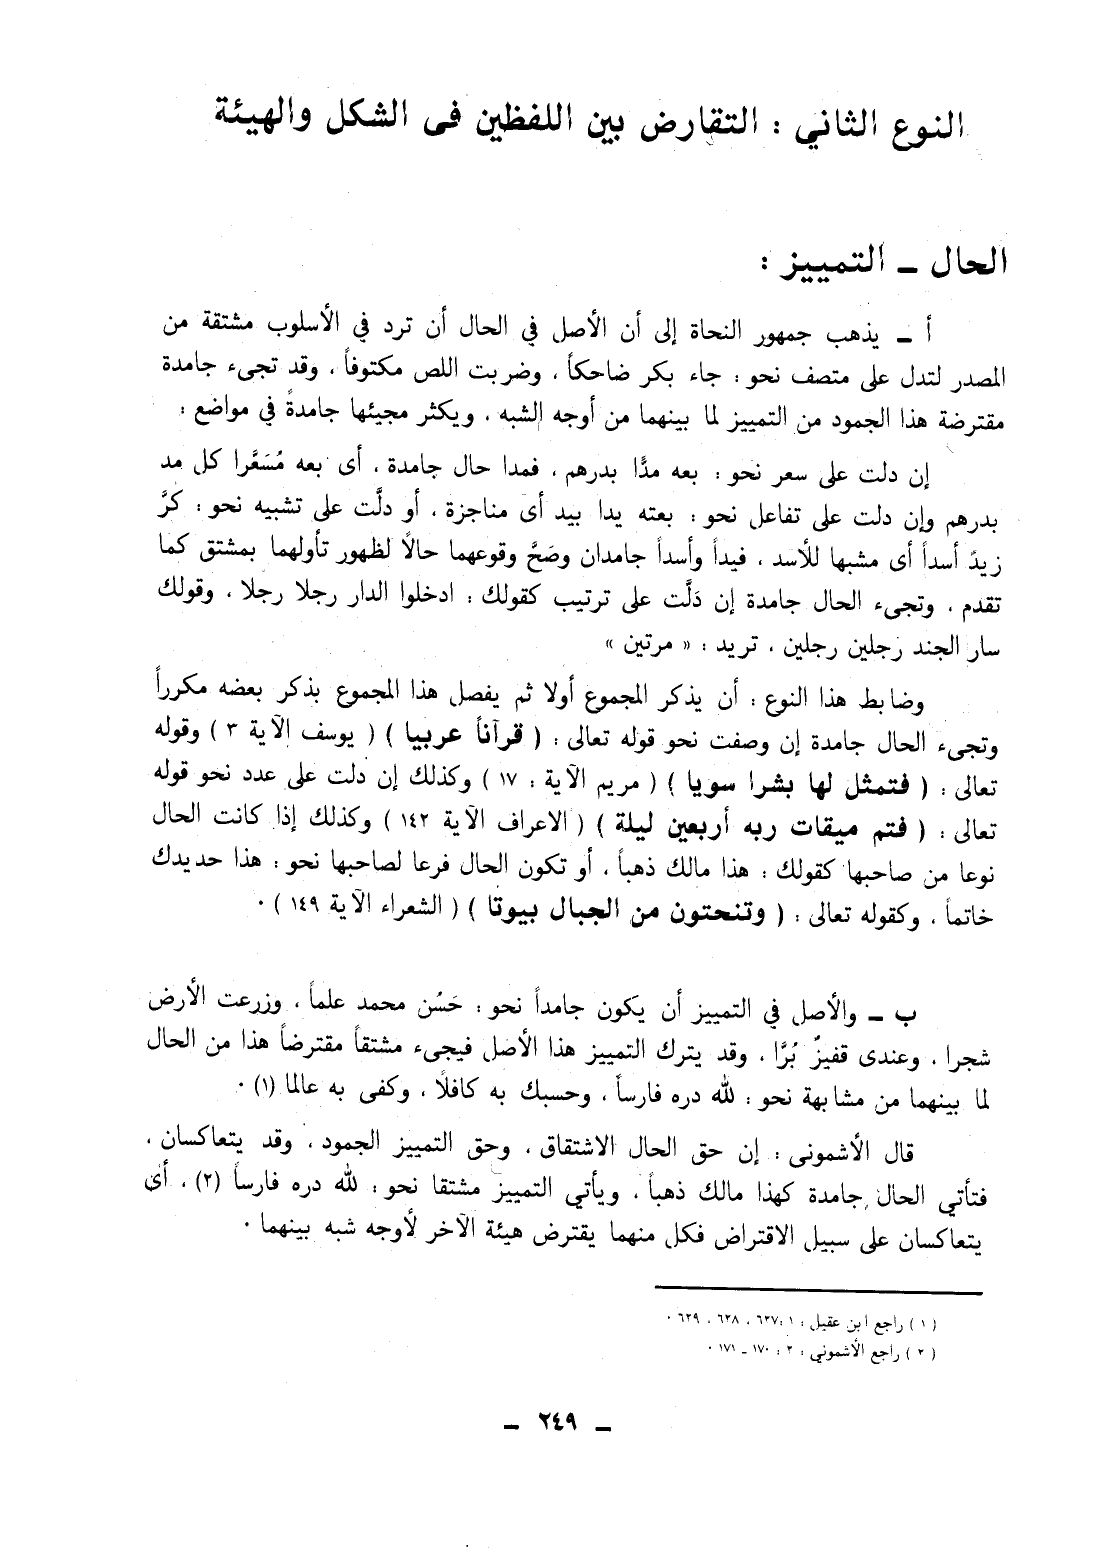 النوع الثاني : التقارض بين اللفظين فى الشكل والهيئة
الحال ـ التمييز :
أ ـ يذهب جمهور النحاة إلى أن الأصل في الحال أن ترد في الأسلوب مشتقة من
المصدر لتدل على متصف نحو : جاء بكر ضاحكاً ، وضربت اللص مكتوفاً ، وقد تجىء جامدة
مقترضة هذا الجمود من التمييز لما بينهما من أوجه الشبه ، ويكثر مجيئها جامدةً في مواضع :
إن دلت على سعر نحو : بعه مدًّا بدرهم ، فمدا حال جامدة ، أى بعه مُسَعَّرا كل مد
بدرهم وإن دلت على تفاعل نحو : بعته يدا بيد أى مناجزة ، أو دلَّت على تشبيه نحو : كرَّ
زيدٌ أسداً أى مشبها للأسد ، فيداً وأسداً جامدان وصَحَّ وقوعهما حالًا لظهور تأولهما بمشتق كما
تقدم ، وتجىء الحال جامدة إن دَلَّت على ترتيب كقولك : ادخلوا الدار رجلا رجلا ، وقولك
سار الجند رجلين رجلين ، تريد : « مرتين »
وضابط هذا النوع : أن يذكر المجموع أولا ثم يفصل هذا المجموع بذكر بعضه مكرراً
وتجىء الحال جامدة إن وصفت نحو قوله تعالى : ( قرآناً عربيا ) ( يوسف الآية ٣ ) وقوله
تعالى : ( فتمثل لها بشرا سويا ) ( مريم الآية : ١٧ ) وكذلك إن دلت على عدد نحو قوله
تعالى : ( فتم ميقات ربه أربعين ليلة ) ( الاعراف الآية ١٤٢ ) وكذلك إذا كانت الحال
نوعا من صاحبها كقولك : هذا مالك ذهباً ، أو تكون الحال فرعا لصاحبها نحو : هذا حديدك
خاتماً ، وكقوله تعالى : ( وتنحتون من الجبال بيوتا ) ( الشعراء الآية ١٤٩ ) ٠
ب ـ والأصل في التمييز أن يكون جامداً نحو : حَسُن محمد علماً ، وزرعت الأرض
شجرا ، وعندى قفيزٌ بُرًّا ، وقد يترك التمييز هذا الأصل فيجىء مشتقاً مقترضاً هذا من الحال
لما بينهما من مشابهة نحو : لله دره فارساً ، وحسبك به كافلًا ، وكفى به عالما (١) ٠
قال الأشمونى : إن حق الحال الاشتقاق ، وحق التمييز الجمود ، وقد يتعاكسان ،
فتأتي الحال جامدة كهذا مالك ذهباً ، ويأتي التمييز مشتقا نحو : لله دره فارساً (٢) ، أى
يتعاكسان على سبيل الاقتراض فكل منهما يقترض هيئة الآخر لأوجه شبه بينهما ٠
( ١ ) راجع ابن عقيل : ١ : ٦٣٧ ، ٦٣٨ ، ٦٣٩ ٠
( ٢ ) راجع الأشموني : ٢ : ١٧٠ ـ ١٧١ ٠
ـ ٢٤٩ ـ